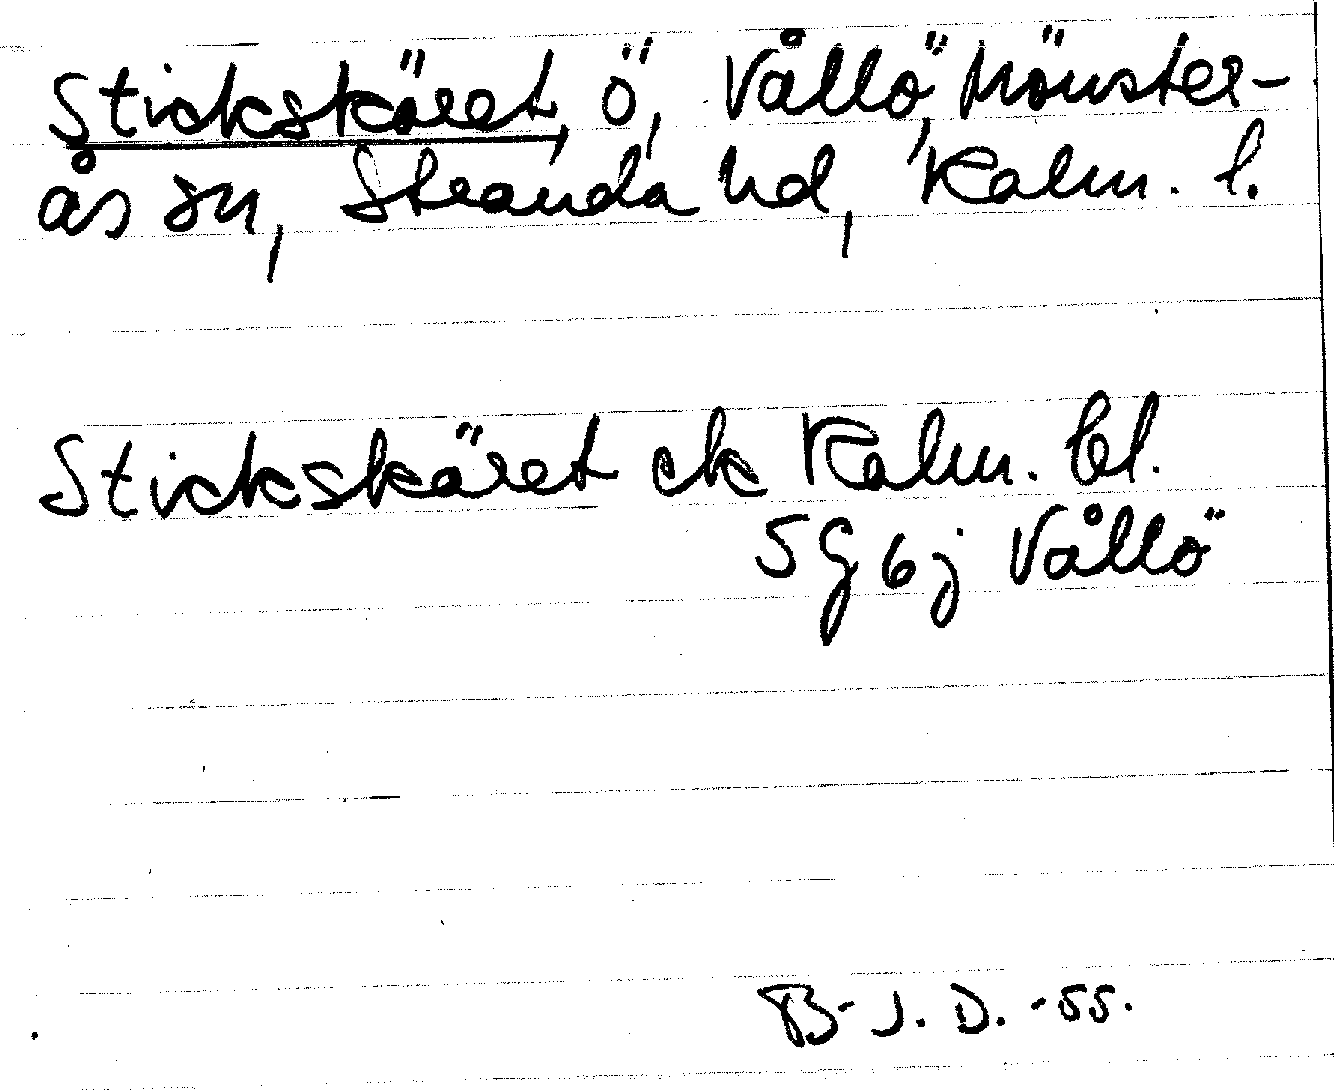 Stickskäret, ö, Vållö, Mönster-
ås sn, Stranda hd, Kalm. l.
Stickskäret ek Kalm. bl.
5G6j Vållö
B-J. D. -55.